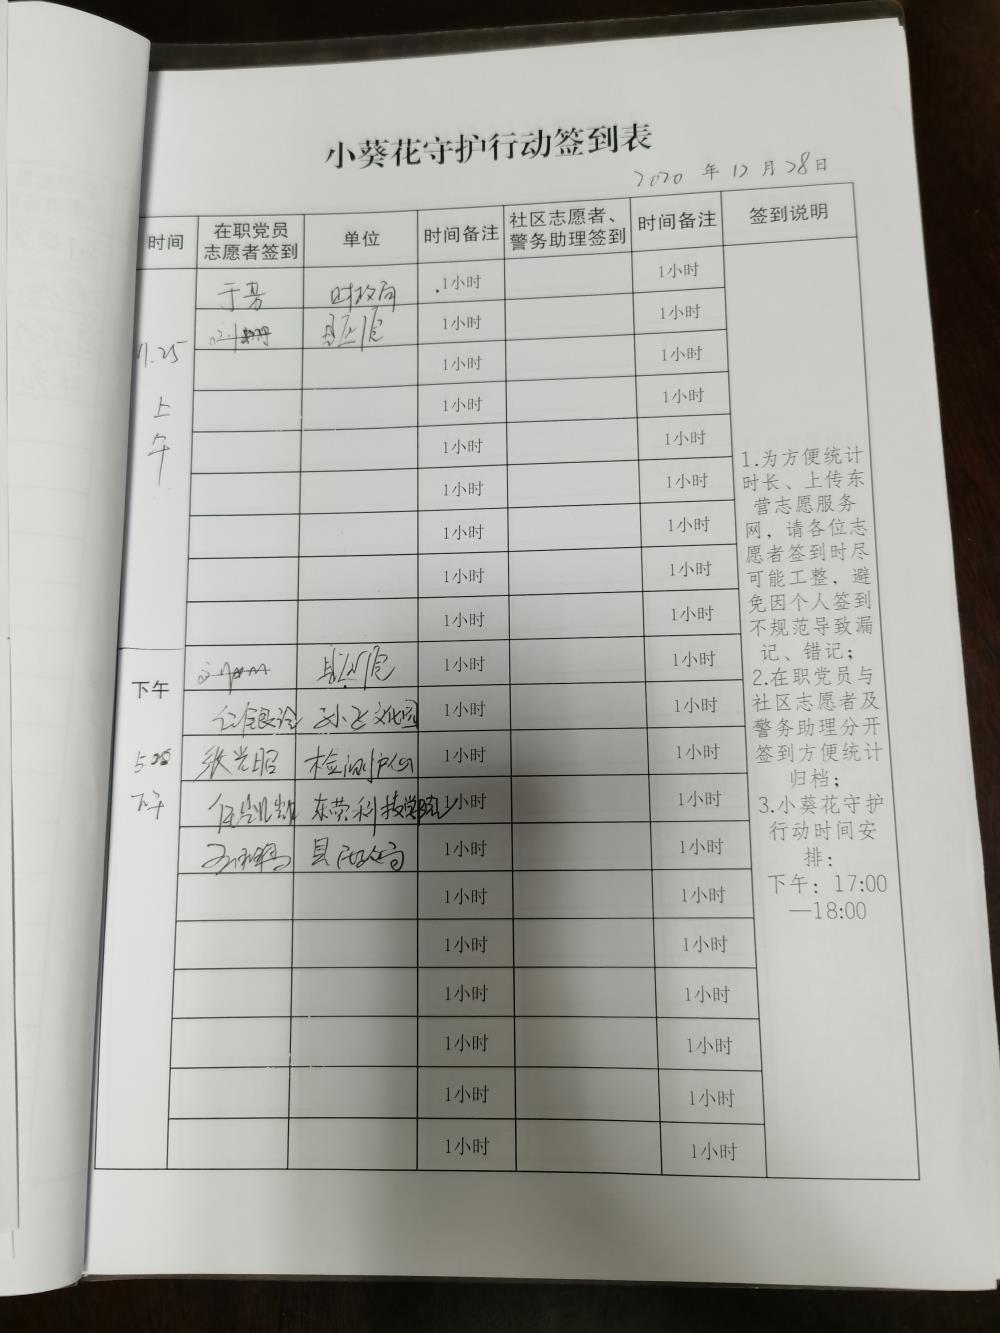 小葵花守护行动签到表
2020 年 12 月 28 日
时间 在职党员志愿者签到 单位 时间备注 社区志愿者、警务助理签到 时间备注 签到说明
于芳 财政局 1小时 1小时
1小时 1小时
1小时 1小时
上午
1小时 1小时
1小时 1小时
1小时 1小时
1小时 1小时
1小时 1小时
1小时 1小时
下午 1小时 1小时
1小时 1小时
张光昭 1小时 1小时
下午 东营科技学院 1小时 1小时
县 1小时 1小时
1小时 1小时
1小时 1小时
1小时 1小时
1小时 1小时
1小时 1小时
1小时 1小时
1.为方便统计
时长、上传东
营志愿服务
网，请各位志
愿者签到时尽
可能工整，避
免因个人签到
不规范导致漏
记、错记；
2.在职党员与
社区志愿者及
警务助理分开
签到方便统计
归档；
3.小葵花守护
行动时间安
排：
下午：17:00
—18:00